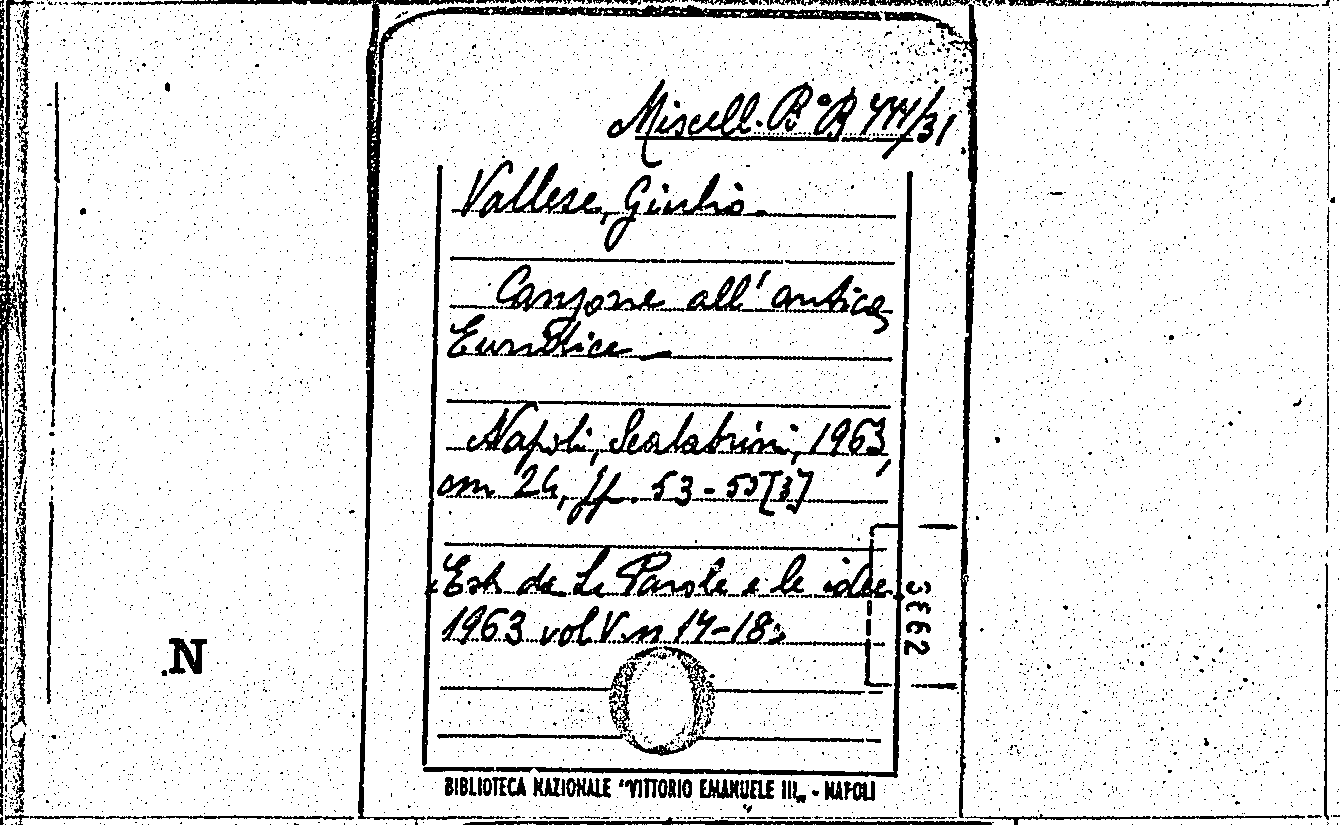 Miscell. Bª B 44/31
Vallese, Giulio.
Canzone all'antica
Euridice
Napoli, Scalabrini, 1963,
cm 24, pp. 53-55 [3]
Estr. da Le Parole e le idee
1963 vol V. n 17-18
N
BIBLIOTECA NAZIONALE "VITTORIO EMANUELE III„ - NAPOLI